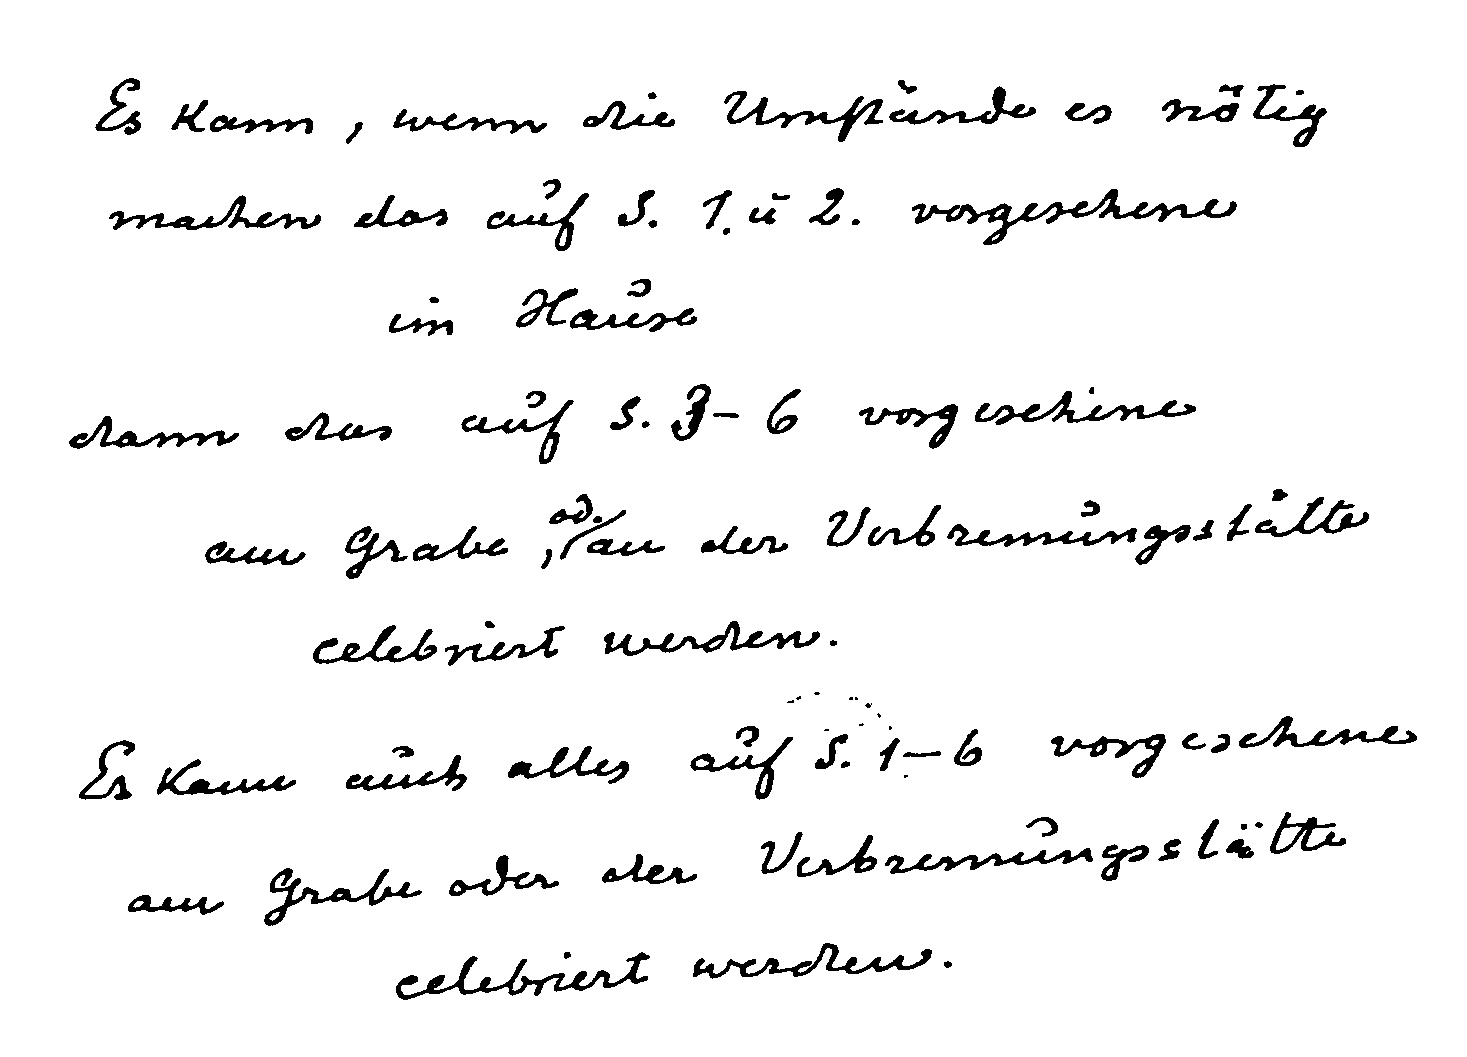 Es kann, wenn die Umstände es nötig
machen das auf S. 1. u 2. vorgesehene
im Hause
dann das auf S. 3-6 vorgesehene
am Grabe, od. an der Verbrennungsstätte
celebriert werden.
Es kann auch alles auf S. 1-6 vorgesehene
am Grabe oder der Verbrennungsstätte
celebriert werden.